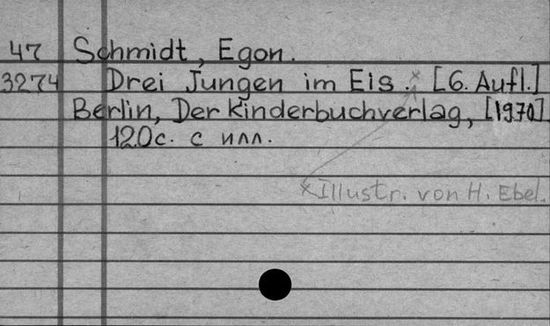 47 Schmidt, Egon.
3274 Drei Jungen im Eis.× [6. Aufl.]
Berlin, Der Kinderbuchverlag, [1970]
120с. с илл.
×Illustr. von H. Ebel.